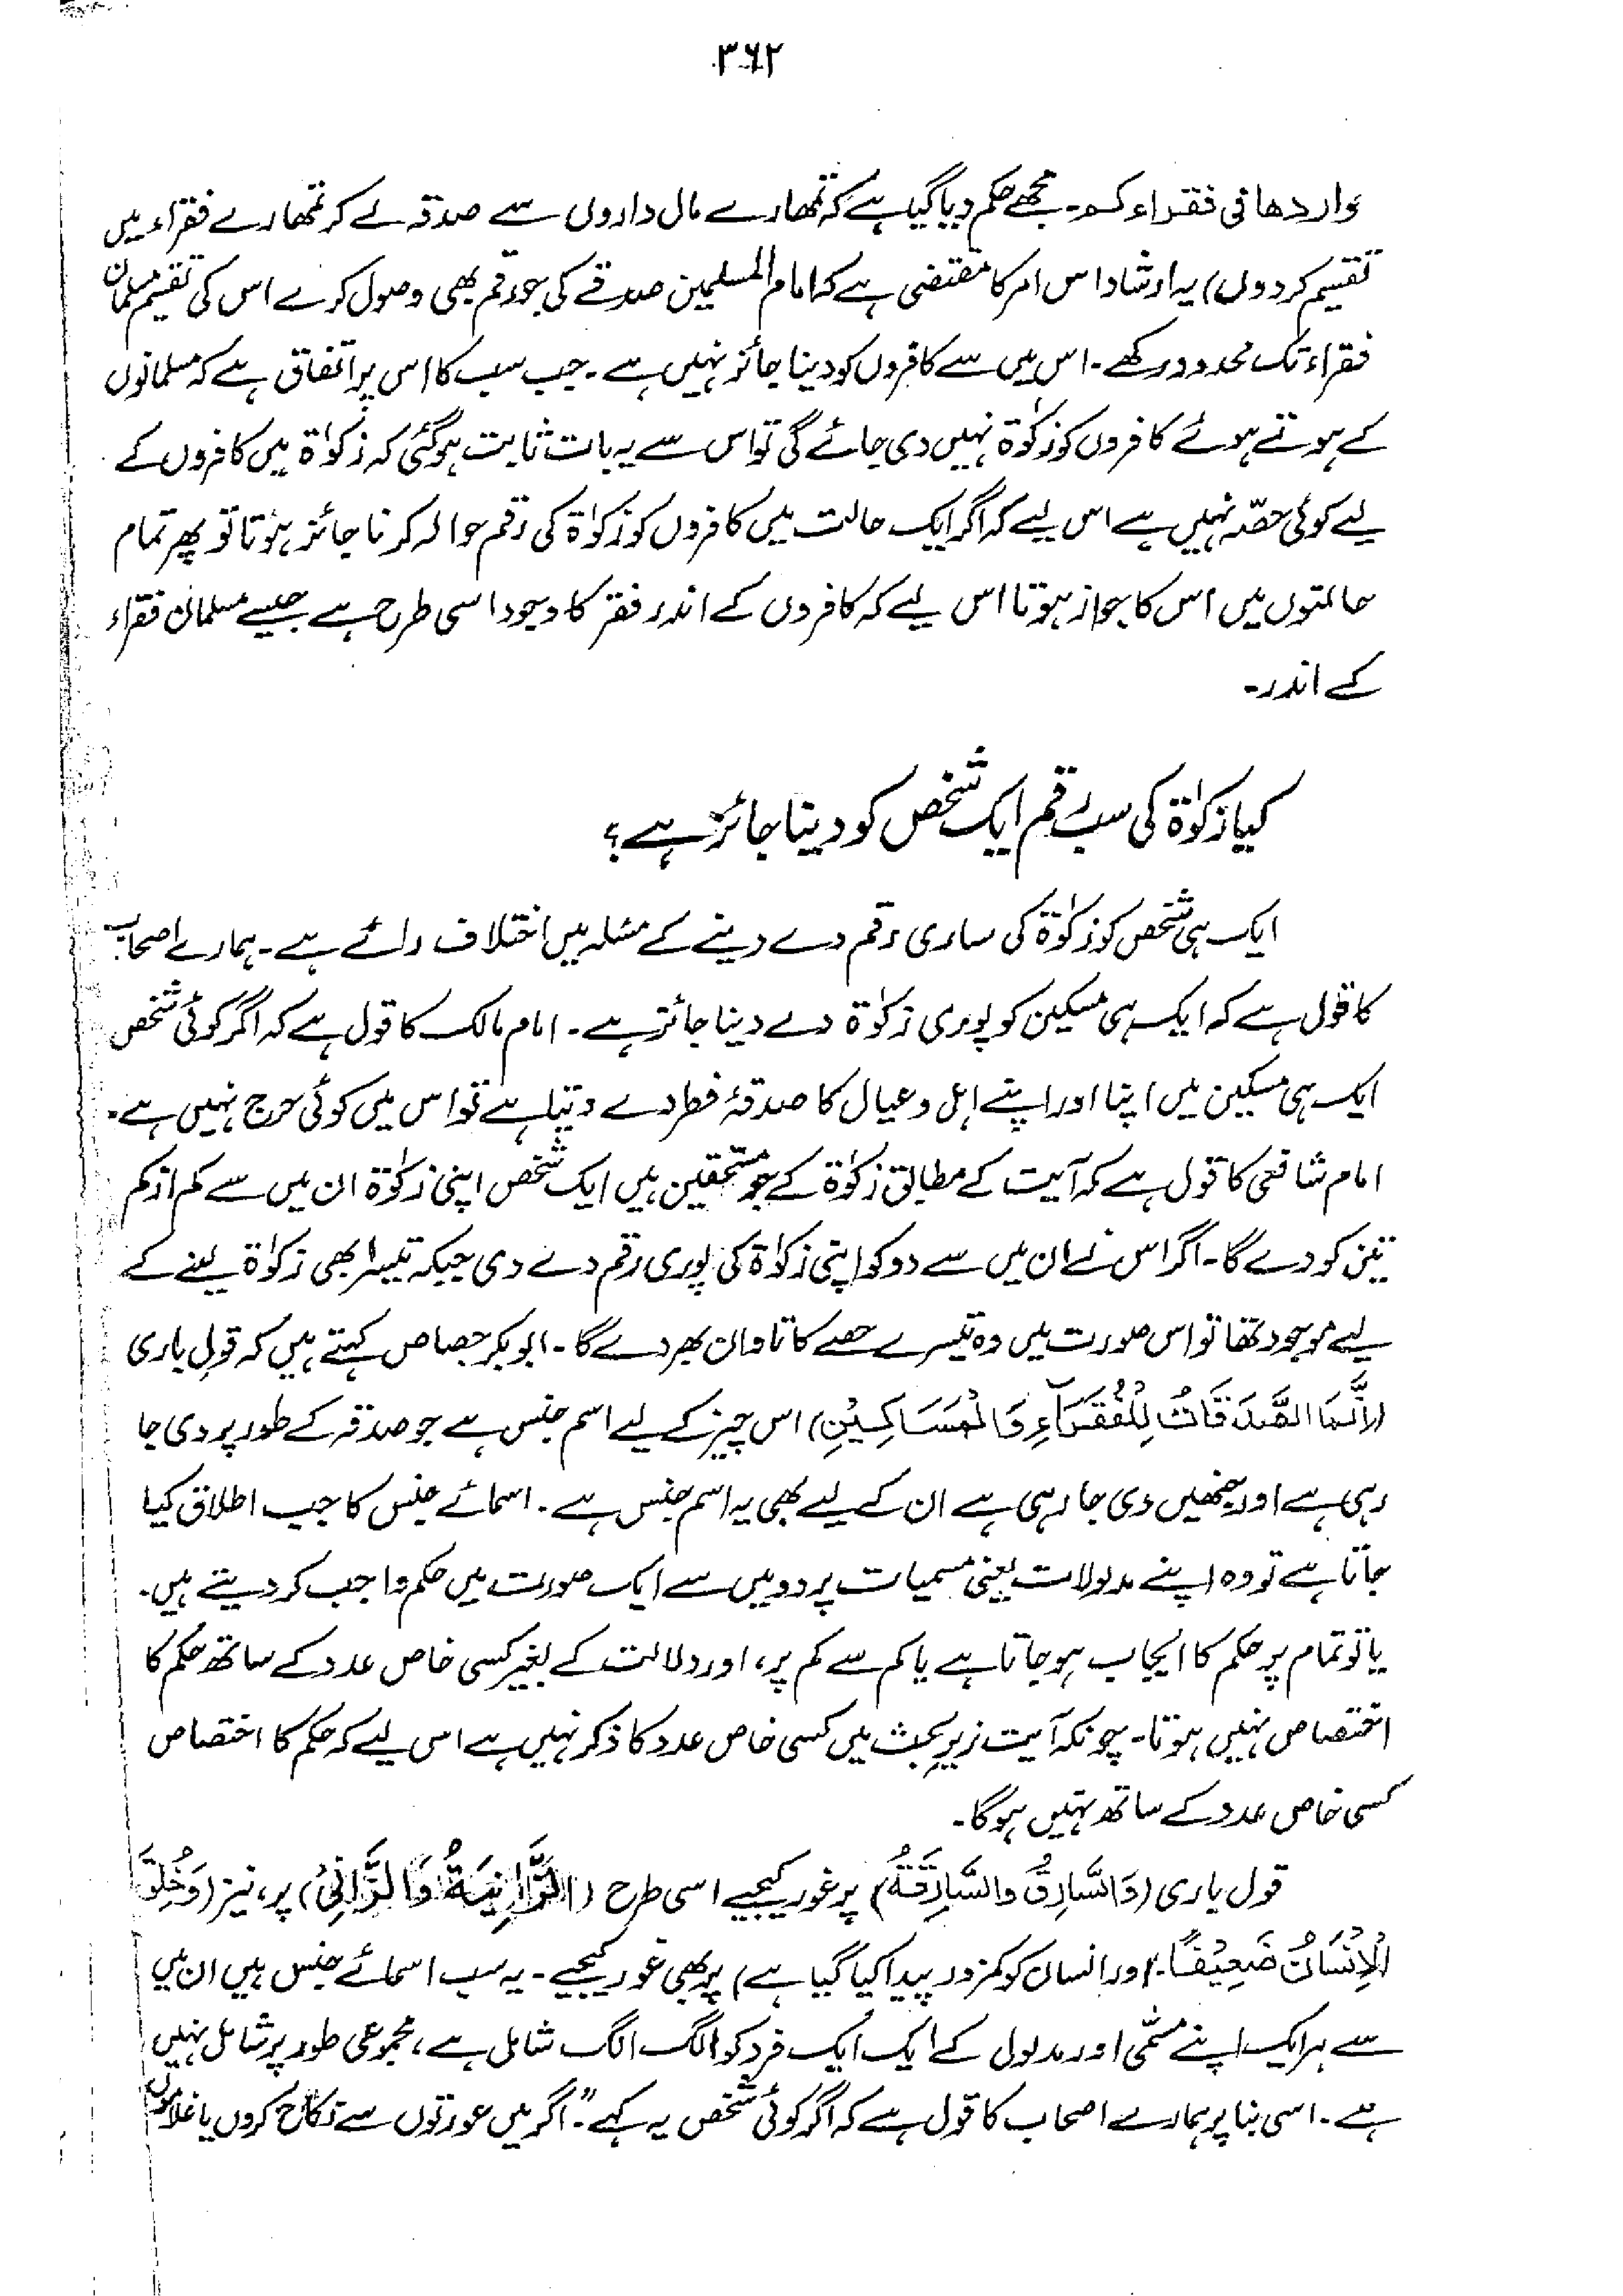 ۳۶۲
وارد ها فی فقراء کم۔ مجھے حکم دیا گیا ہے کہ تمھارے مال داروں سے صدقہ لے کر تمھارے فقراء میں
تقسیم کر دوں) یہ ارشاد اس امر کا مقتضی ہے کہ امام المسلمین صدقے کی جو رقم بھی وصول کرے اس کی تقسیم مسلمان
فقراء تک محدود رکھے۔ اس میں سے کافروں کو دینا جائز نہیں ہے۔ جب سب کا اس پر اتفاق ہے کہ مسلمانوں
کے ہوتے ہوئے کافروں کو زکوٰۃ نہیں دی جائے گی تو اس سے یہ بات ثابت ہو گئی کہ زکوٰۃ میں کافروں کے
لیے کوئی حصّہ نہیں ہے اس لیے کہ اگر ایک حالت میں کافروں کو زکوٰۃ کی رقم حوالہ کرنا جائز ہوتا تو پھر تمام
حالتوں میں اس کا جواز ہوتا اس لیے کہ کافروں کے اندر فقر کا وجود اسی طرح ہے جیسے مسلمان فقراء
کے اندر۔
کیا زکوٰۃ کی سب رقم ایک شخص کو دینا جائز ہے؟
ایک ہی شخص کو زکوٰۃ کی ساری رقم دے دینے کے مسئلہ میں اختلاف رائے ہے۔ ہمارے اصحاب
کا قول ہے کہ ایک ہی مسکین کو پوری زکوٰۃ دے دینا جائز ہے۔ امام مالک کا قول ہے کہ اگر کوئی شخص
ایک ہی مسکین میں اپنا اور اپنے اہل و عیال کا صدقۂ فطر دے دیتا ہے تو اس میں کوئی حرج نہیں ہے۔
امام شافعی کا قول ہے کہ آیت کے مطابق زکوٰۃ کے جو مستحقین ہیں ایک شخص اپنی زکوٰۃ ان میں سے کم از کم
تین کو دے گا۔ اگر اس نے ان میں سے دو کو اپنی زکوٰۃ کی پوری رقم دے دی جبکہ تیسرا بھی زکوٰۃ لینے کے
لیے موجود تھا تو اس صورت میں وہ تیسرے حصے کا تاوان بھر دے گا۔ ابوبکر جصاص کہتے ہیں کہ قولِ باری
(اِنَّمَا الصَّدَقَاتُ لِلْفُقَرَآءِ وَالْمَسَاكِیْنِ) اس چیز کے لیے اسم جنس ہے جو صدقہ کے طور پر دی جا
رہی ہے اور جنھیں دی جا رہی ہے ان کے لیے بھی یہ اسم جنس ہے۔ اسمائے جنس کا جب اطلاق کیا
جاتا ہے تو وہ اپنے مدلولات یعنی مسمیات پر دو میں سے ایک صورت میں حکم واجب کر دیتے ہیں۔
یا تو تمام پر حکم کا ایجاب ہو جاتا ہے یا کم سے کم پر، اور دلالت کے بغیر کسی خاص عدد کے ساتھ حکم کا
اختصاص نہیں ہوتا۔ چونکہ آیت زیرِ بحث میں کسی خاص عدد کا ذکر نہیں ہے اس لیے کہ حکم کا اختصاص
کسی خاص عدد کے ساتھ نہیں ہوگا۔
قول باری (وَالسَّارِقُ وَالسَّارِقَةُ) پر غور کیجیے اسی طرح (الزَّانِیَةُ وَالزَّانِیْ) پر، نیز (وَخُلِقَ
الْاِنْسَانُ ضَعِیْفًا۔ اور انسان کو کمزور پیدا کیا گیا ہے) پر بھی غور کیجیے۔ یہ سب اسمائے جنس ہیں ان میں
سے ہر ایک اپنے مسمّی اور مدلول کے ایک ایک فرد کو الگ الگ شامل ہے، مجموعی طور پر شامل نہیں
ہے۔ اسی بنا پر ہمارے اصحاب کا قول ہے کہ اگر کوئی شخص یہ کہے "اگر میں عورتوں سے نکاح کروں یا غلاموں